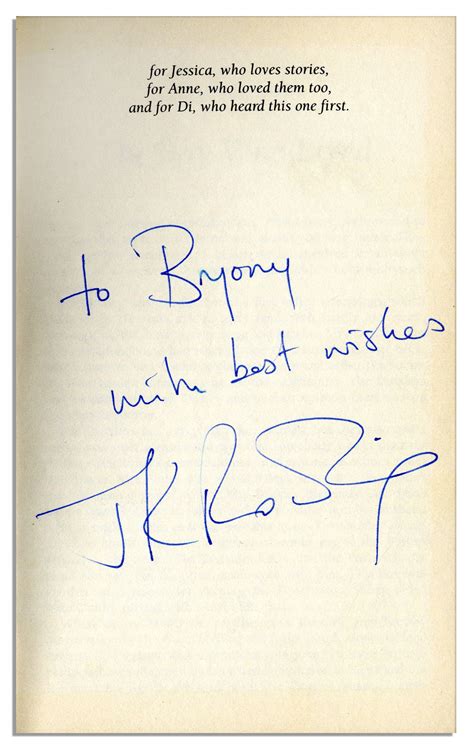 for Jessica, who loves stories,
for Anne, who loved them too,
and for Di, who heard this one first.
to Bryony
with best wishes
JK Rowling